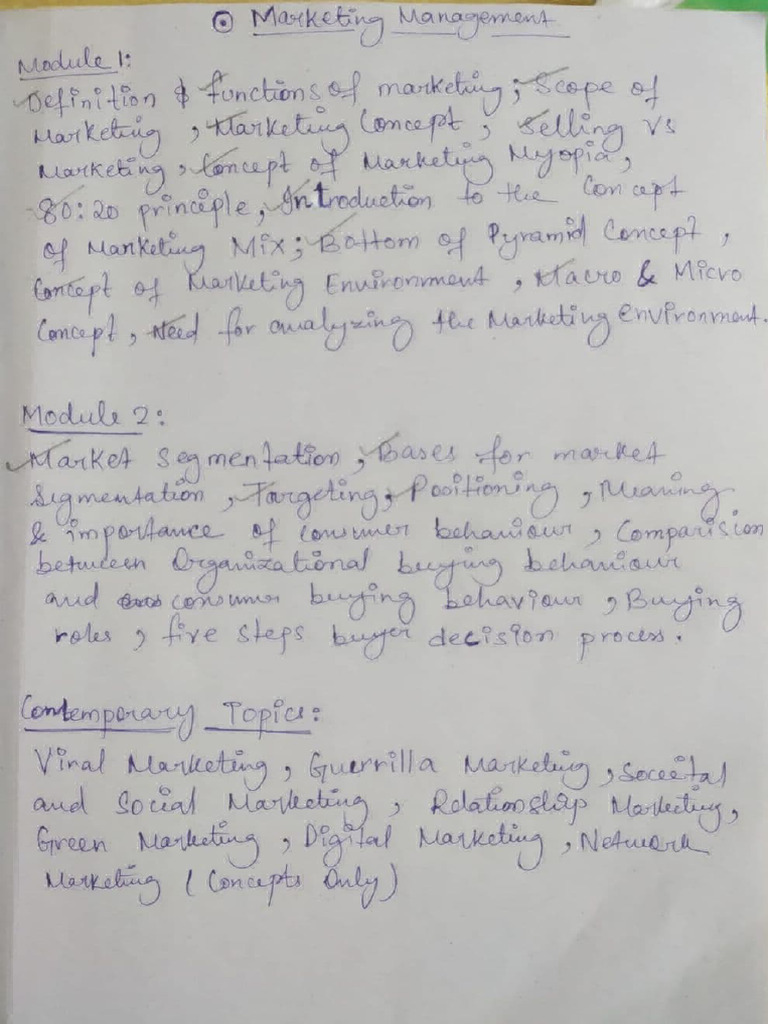 Marketing Management
Module 1:
Definition & functions of marketing; Scope of
Marketing, Marketing Concept, Selling Vs
Marketing, Concept of Marketing Myopia,
80:20 principle, Introduction to the Concept
of Marketing Mix; Bottom of Pyramid Concept,
Concept of Marketing Environment, Macro & Micro
Concept, Need for analyzing the Marketing Environment.
Module 2:
Market Segmentation, Bases for market
Segmentation, Targeting, Positioning, Meaning
& importance of consumer behaviour, Comparision
between Organizational buying behaviour
and consumer buying behaviour, Buying
roles, five steps buyer decision process.
Contemporary Topics:
Viral Marketing, Guerrilla Marketing, Soceital
and Social Marketing, Relationship Marketing,
Green Marketing, Digital Marketing, Network
Marketing (Concepts Only)